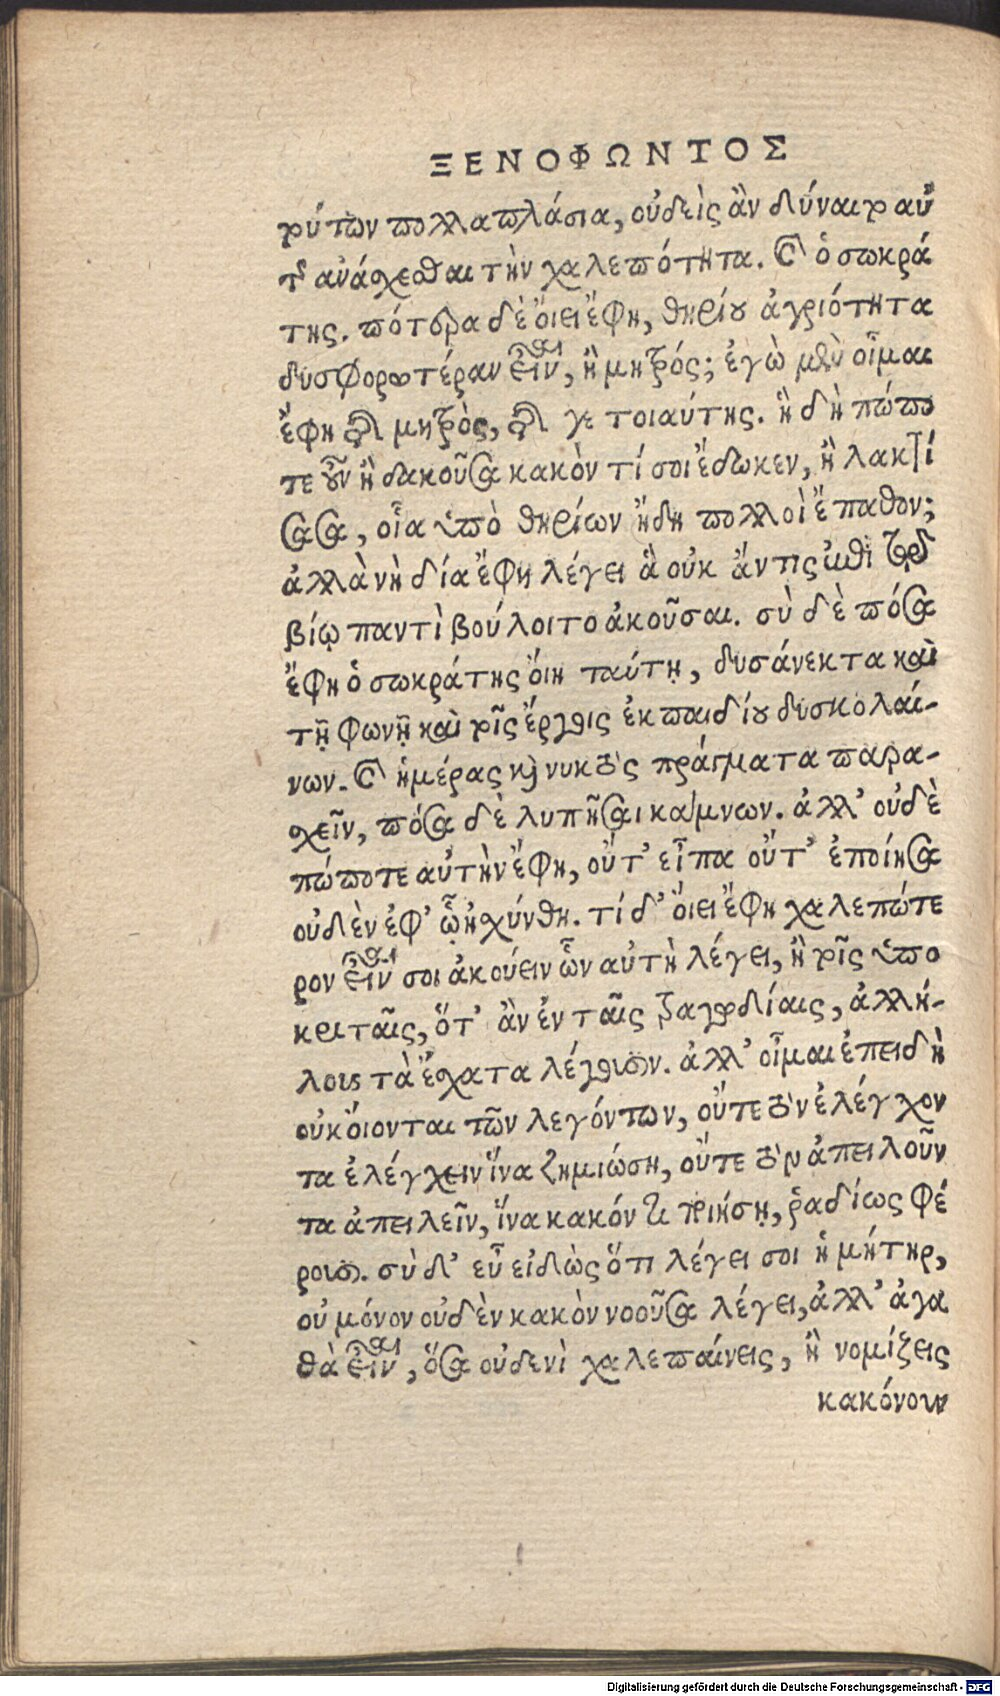 ΞΕΝΟΦΩΝΤΟΣ
τούτων πολλαπλάσια, οὐδεὶς ἂν δύναιτο αὐ
τῆς ἀνάσχεσθαι τὴν χαλεπότητα. καὶ ὁ σωκρά
της. πότερα δὲ ὄιει ἔφη, θηρίου ἀγριότητα
δυσφορωτέραν εἶναι, ἢ μητρός; ἐγὼ μὲν οἶμαι
ἔφη τῆς μητρὸς, τῆς γε τοιαύτης. ἤδη πώπο
τε οὖν ἢ δακοῦσα κακὸν τί σοι ἔδωκεν, ἢ λακτί
σασα, οἷα ὑπὸ θηρίων ἤδη πολλοὶ ἔπαθον;
ἀλλὰ νὴ δία ἔφη λέγει ἃ οὐκ ἄν τις ἐπὶ τῷ
βίῳ παντὶ βούλοιτο ἀκοῦσαι. σὺ δὲ πόσα
ἔφη ὁ σωκράτης ὄιη ταύτῃ, δυσάνεκτα καὶ
τῇ φωνῇ καὶ τοῖς ἔργοις ἐκ παιδίου δυσκολαί-
νων. καὶ ἡμέρας καὶ νυκτὸς πράγματα παρα-
σχεῖν, πόσα δὲ λυπῆσαι κάμνων. ἀλλ' οὐδὲ
πώποτε αὐτὴν ἔφη, οὔτ' εἶπα οὔτ' ἐποίησα
οὐδὲν ἐφ' ᾧ ᾐσχύνθη. τί δ' ὄιει ἔφη χαλεπώτε
ρον εἶναι σοι ἀκούειν ὧν αὐτὴ λέγει, ἢ τοῖς ὑπο
κριταῖς, ὅτ' ἂν ἐν ταῖς τραγῳδίαις, ἀλλή-
λους τὰ ἔσχατα λέγουσιν. ἀλλ' οἶμαι ἐπειδὴ
οὐκ ὄιονται τῶν λεγόντων, οὔτε τὸν ἐλέγχον
τα ἐλέγχειν ἵνα ζημιώσῃ, οὔτε τὸν ἀπειλοῦν
τα ἀπειλεῖν, ἵνα κακόν τι ποιήσῃ, ῥαδίως φέ
ρουσι. σὺ δ' εὖ εἰδὼς ὅτι λέγει σοι ἡ μήτηρ,
οὐ μόνον οὐδὲν κακὸν νοοῦσα λέγει, ἀλλ' ἀγα
θὰ εἶναι, ὅσα οὐδενὶ χαλεπαίνεις, ἢ νομίζεις
κακόνουν
Digitalisierung gefördert durch die Deutsche Forschungsgemeinschaft - DFG